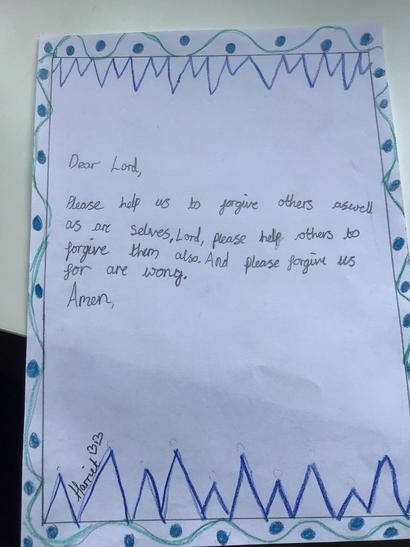 Dear Lord,
Please help us to forgive others aswell
as are selves, Lord, please help others to
forgive them also. And please forgive us
for are wrong.
Amen,
Harriet